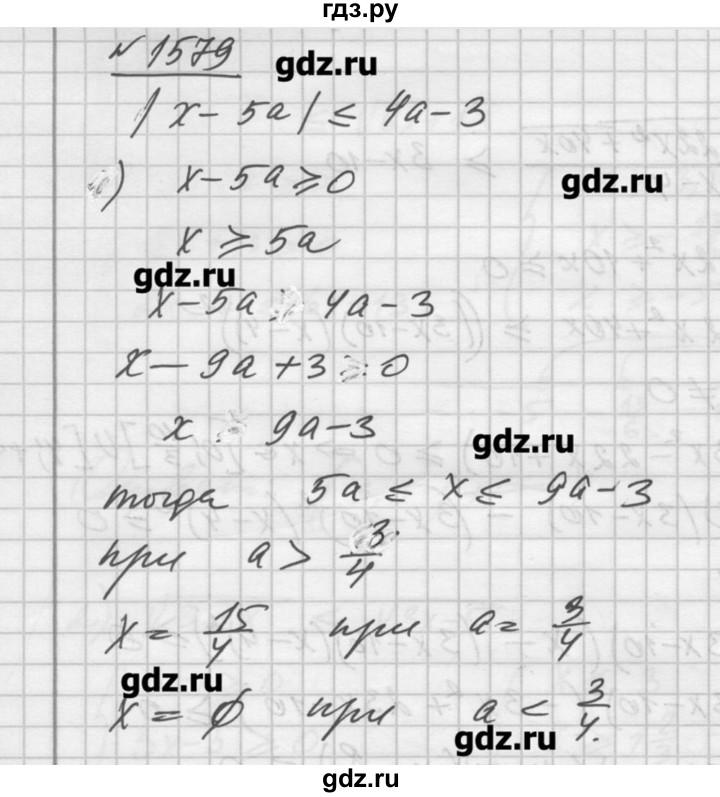 гдз.ру
№ 1579
gdz.ru
|x - 5a| ≤ 4a - 3
) x - 5a ≥ 0
gdz.ru
x ≥ 5a
gdz.ru
x - 5a 4a - 3
x - 9a + 3 0
x 9a - 3
gdz.ru
тогда 5a ≤ x ≤ 9a - 3
при a > 3/4
x = 15/4 при a = 3/4
gdz.ru
x = ∅ при a < 3/4.
gdz.ru
gdz.ru